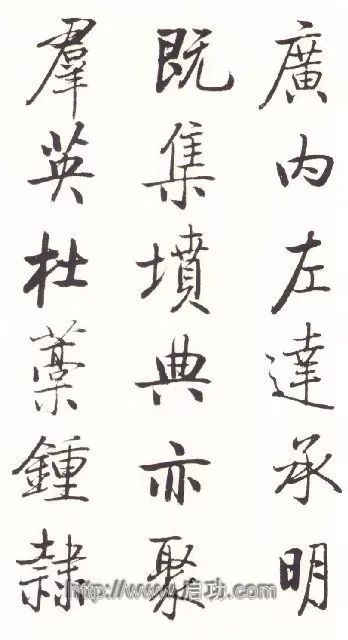 廣内左達承明
既集墳典亦聚
羣英杜藁鍾隸
http://www.启功.com